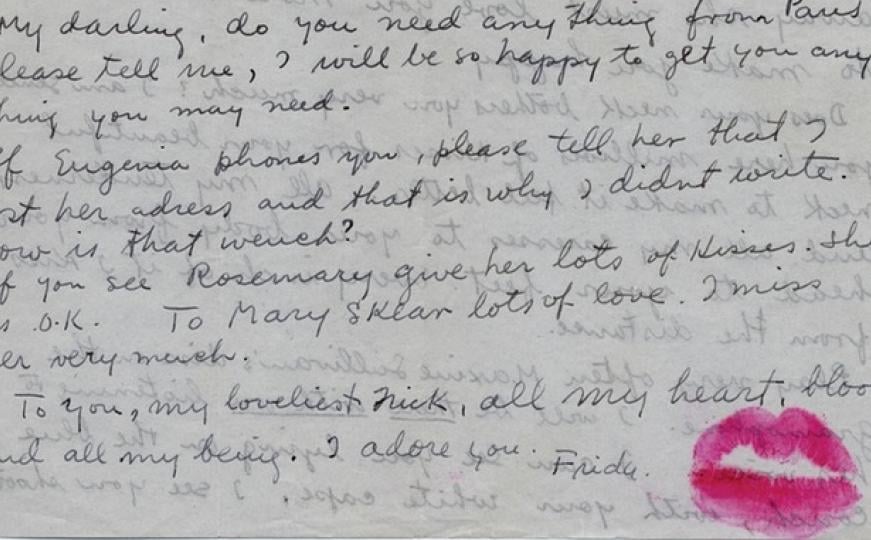 My darling, do you need any thing from Paris
lease tell me, I will be so happy to get you any
hing you may need.
f Eugenia phones you, please tell her that I
st her adress and that is why I didnt write.
ow is that wench?
f you see Rosemary give her lots of Kisses. She
s O.K. To Mary Sklar lots of love. I miss
er very much.
To you, my loveliest Nick, all my heart, bloo
nd all my being. I adore you.
Frida.